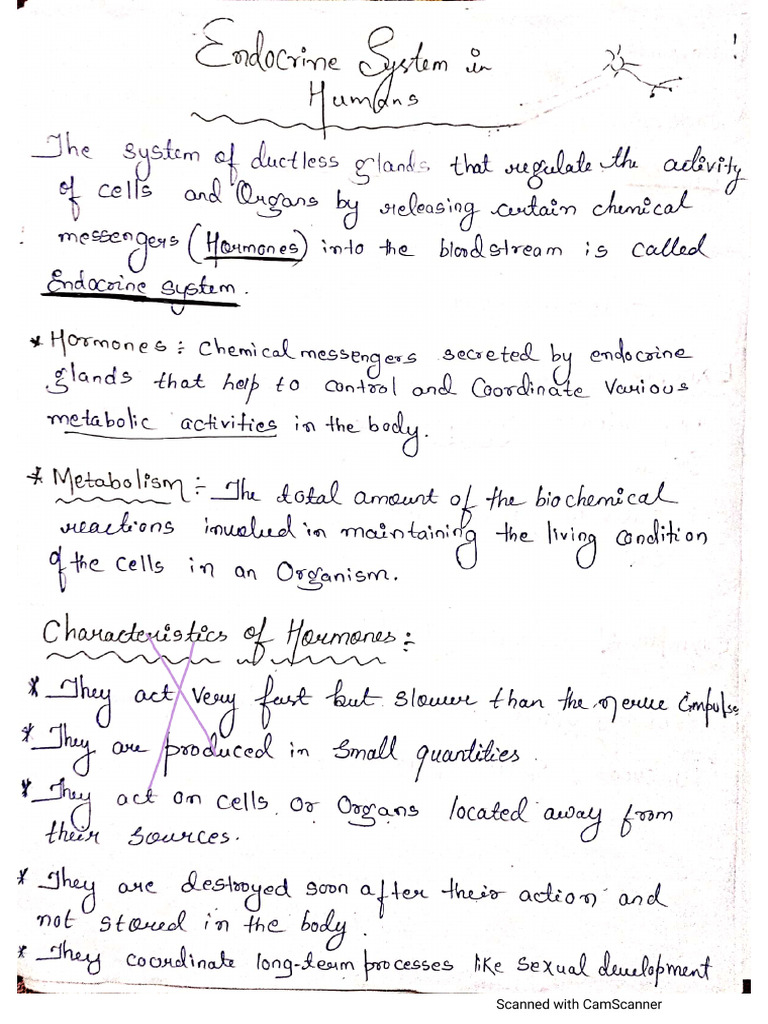 Endocrine System in
Humans
!
The system of ductless glands that regulate the activity
of cells and Organs by releasing certain chemical
messengers (Hormones) into the bloodstream is called
Endocrine system.
* Hormones :- Chemical messengers secreted by endocrine
glands that help to control and Coordinate Various
metabolic activities in the body.
* Metabolism :- The total amount of the biochemical
reactions involved in maintaining the living condition
of the cells in an Organism.
Characteristics of Hormones :-
* They act very fast but slower than the nerve impulse
* They are produced in small quantities.
* They act on cells or Organs located away from
their sources.
* They are destroyed soon after their action and
not stored in the body.
* They coordinate long-term processes like sexual development
Scanned with CamScanner